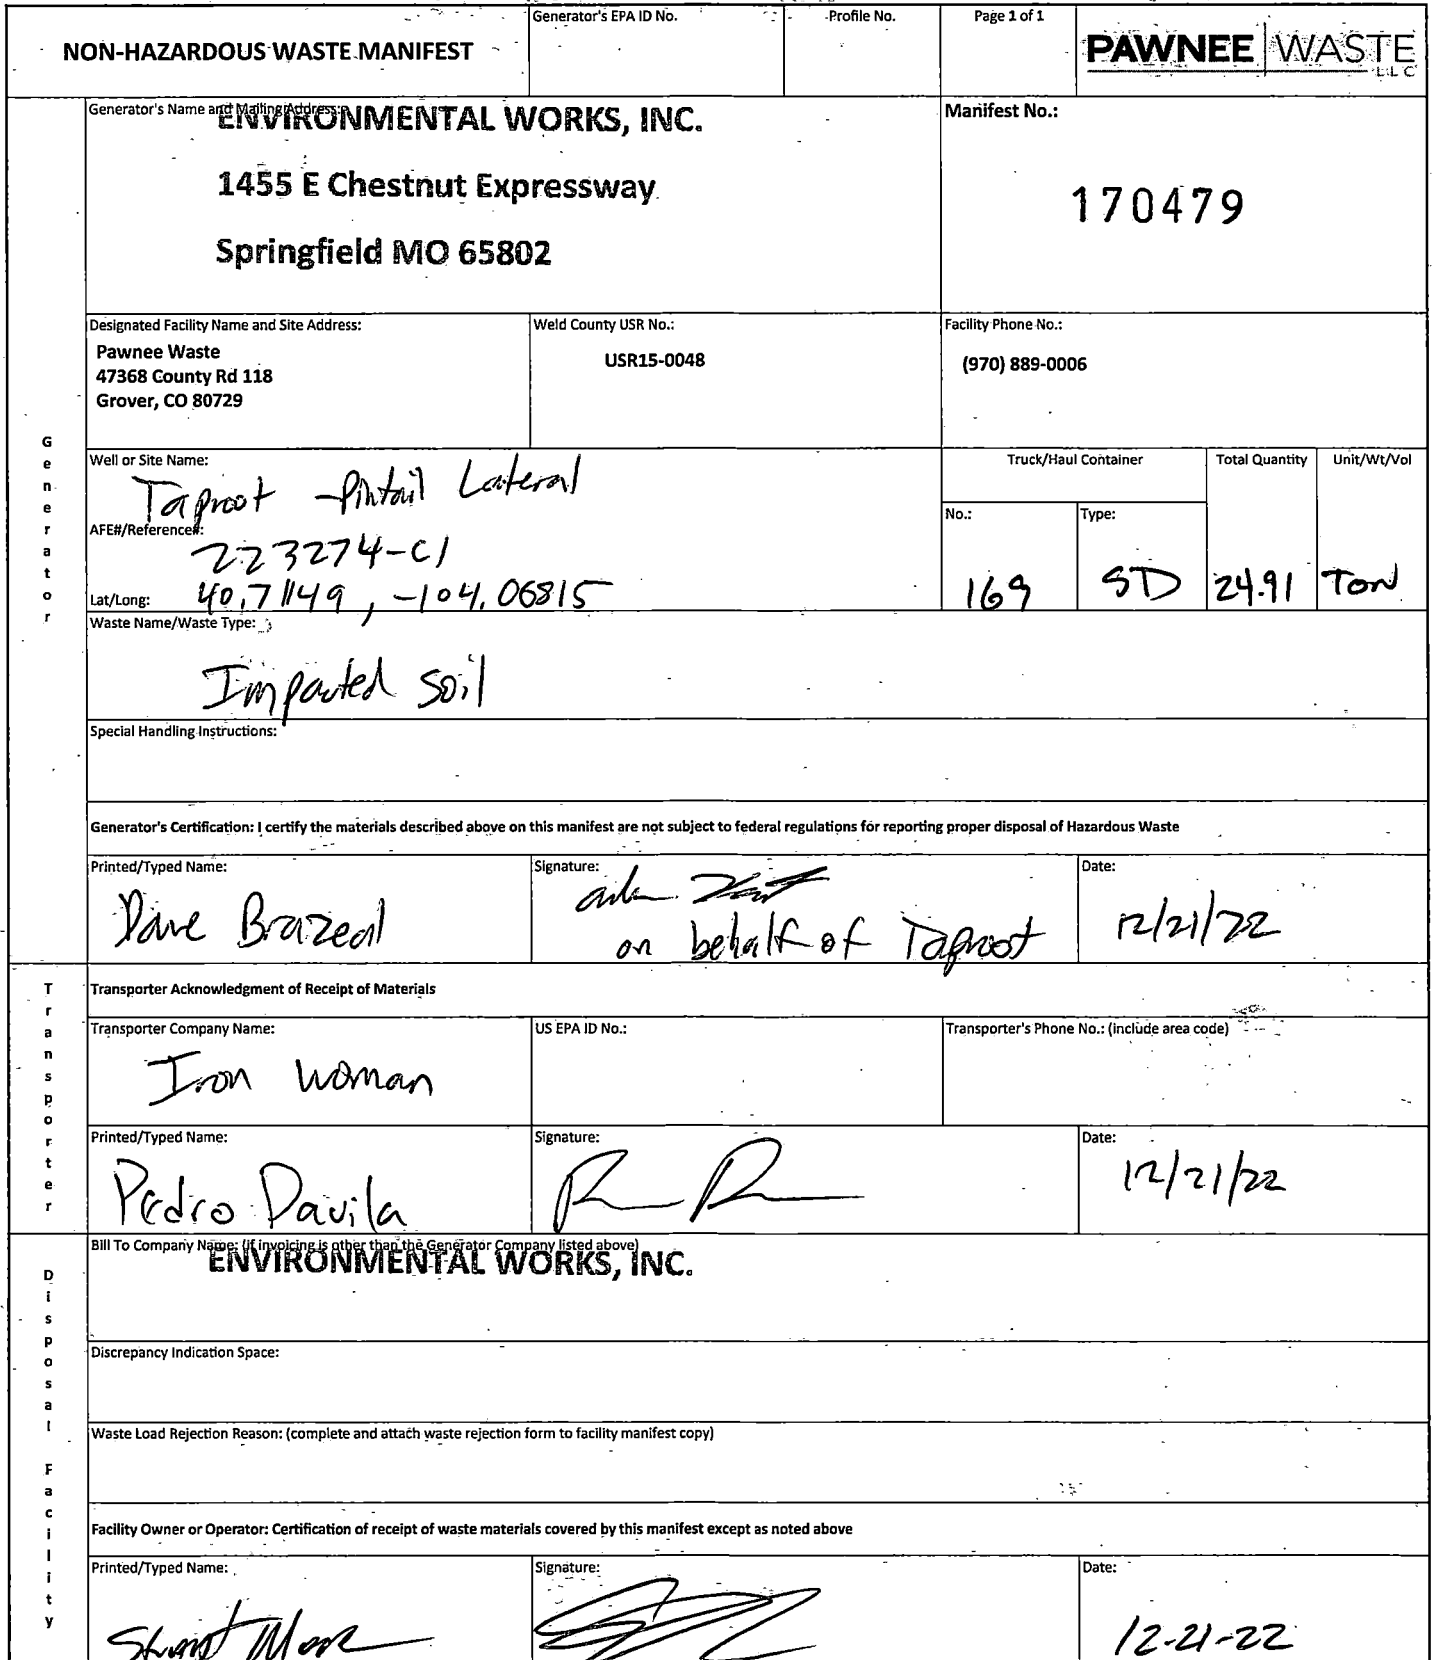 NON-HAZARDOUS WASTE MANIFEST
Generator's EPA ID No.
Profile No.
Page 1 of 1
PAWNEE WASTE LLC
Generator's Name and Mailing Address:
ENVIRONMENTAL WORKS, INC.
1455 E Chestnut Expressway
Springfield MO 65802
Manifest No.:
170479
Designated Facility Name and Site Address:
Pawnee Waste
47368 County Rd 118
Grover, CO 80729
Weld County USR No.:
USR15-0048
Facility Phone No.:
(970) 889-0006
Generator
Well or Site Name:
Taproot - Pintail Lateral
AFE#/Reference#:
223274-C1
Lat/Long: 40.71149, -104.06815
Truck/Haul Container
No.:
169
Type:
SD
Total Quantity
24.91
Unit/Wt/Vol
Ton
Waste Name/Waste Type:
Impacted soil
Special Handling Instructions:
Generator's Certification: I certify the materials described above on this manifest are not subject to federal regulations for reporting proper disposal of Hazardous Waste
Printed/Typed Name:
Dave Brazeal
Signature:
on behalf of Taproot
Date:
12/21/22
Transporter
Transporter Acknowledgment of Receipt of Materials
Transporter Company Name:
Iron Woman
US EPA ID No.:
Transporter's Phone No.: (include area code)
Printed/Typed Name:
Pedro Davila
Signature:
Date:
12/21/22
Disposal Facility
Bill To Company Name: (if invoicing is other than the Generator Company listed above)
ENVIRONMENTAL WORKS, INC.
Discrepancy Indication Space:
Waste Load Rejection Reason: (complete and attach waste rejection form to facility manifest copy)
Facility Owner or Operator: Certification of receipt of waste materials covered by this manifest except as noted above
Printed/Typed Name:
Signature:
Date:
12-21-22